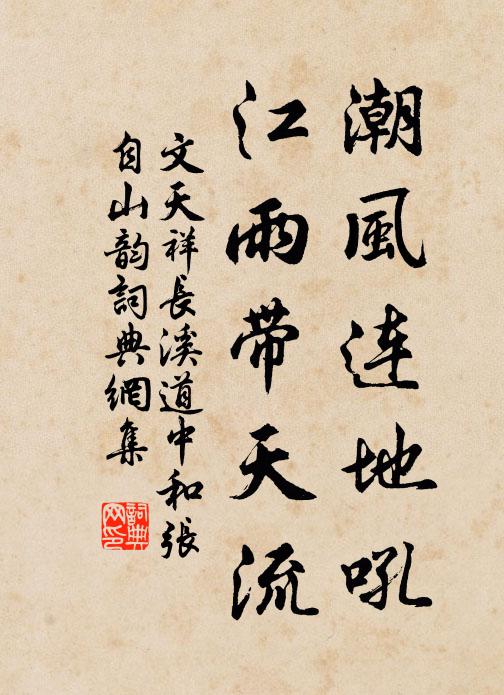 潮風连地吼
江雨带天流
文天祥長溪道中和張
自山韵詞典網集
詞典
网印